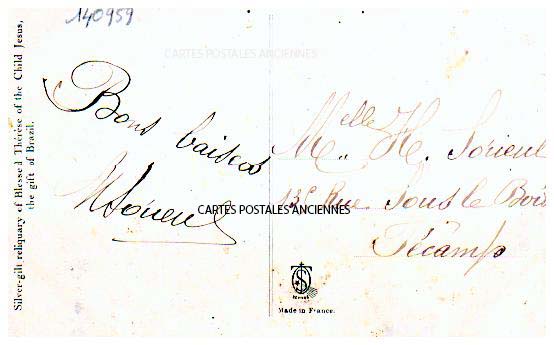 140959
CARTES POSTALES ANCIENNES
Silver-gilt reliquary of Blessed Thérèse of the Child Jesus,
the gift of Brazil.
Bons baisers
Melle H. Sorieul
13c Rue Sous le Bois
Fécamp
CARTES POSTALES ANCIENNES
Made in France.